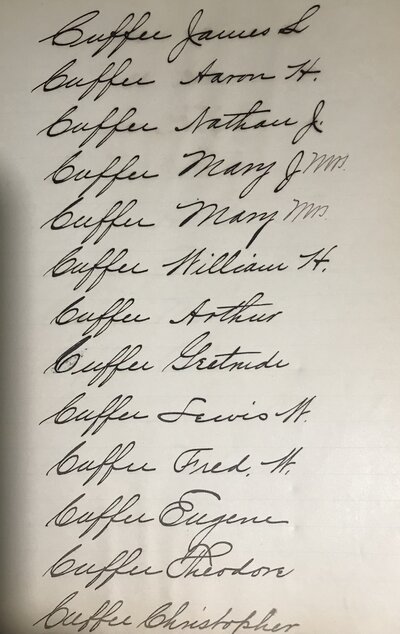 Cuffee James L
Cuffee Aaron H.
Cuffee Nathan J.
Cuffee Mary J Mrs.
Cuffee Mary Mrs.
Cuffee William H.
Cuffee Arthur
Cuffee Geetrude
Cuffee Lewis W.
Cuffee Fred. W.
Cuffee Eugene
Cuffee Theodore
Cuffee Christopher